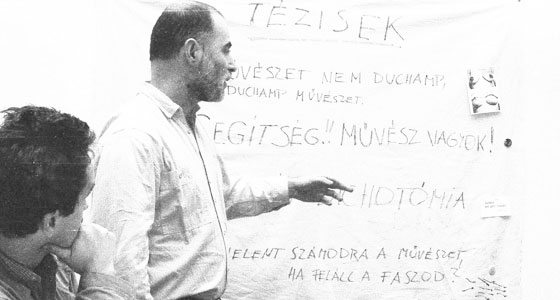 TÉZISEK
ŰVÉSZET NEM DUCHAMP,
DUCHAMP MŰVÉSZET.
SEGÍTSÉG!! MŰVÉSZ VAGYOK!
CHOTÓMIA
JELENT SZÁMODRA A MŰVÉSZET,
HA FELÁLL A FASZOD?